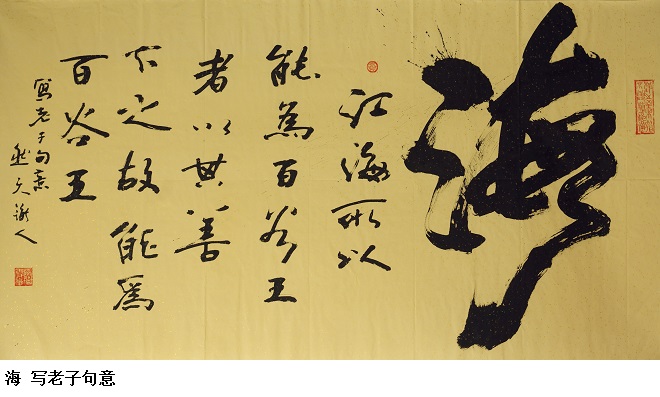 海
江海所以
能為百谷王
者以其善
下之故能為
百谷王
寫老子句意
海 写老子句意